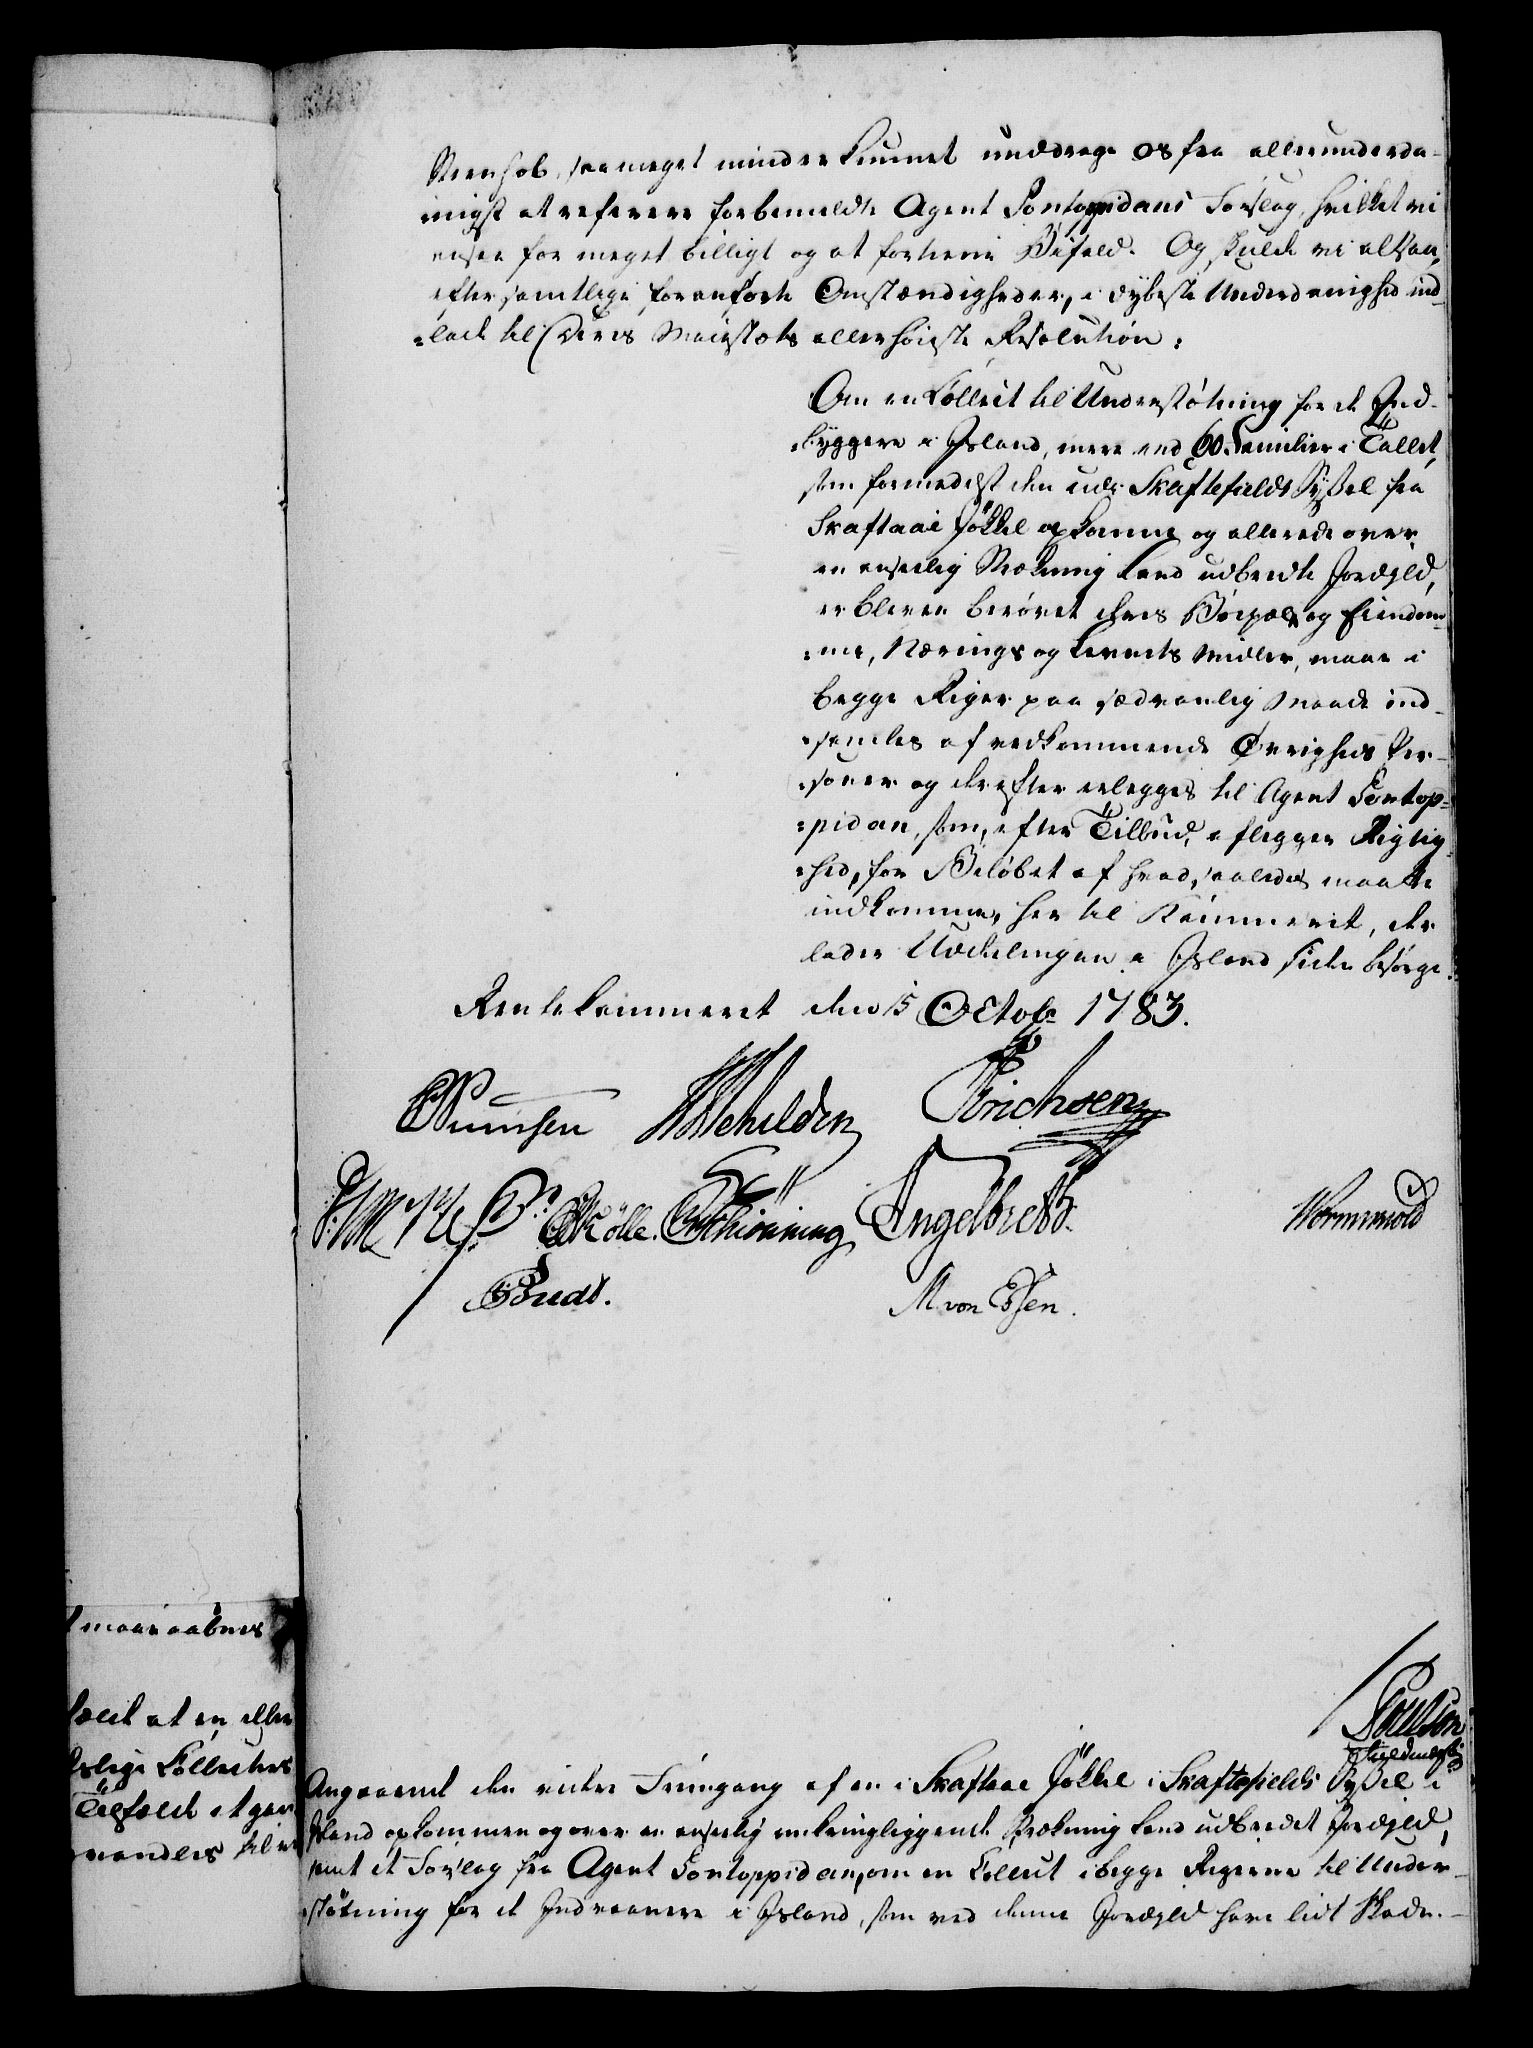 saa meget mindre kunnet unddrage os fra allerunderda-
nigst at referere forbemeldte Agent Pontoppidans Forslag, hvilket vi
ansee for meget billigt og at fortiene Bifald. Og skulde vi altsaa,
efter samtlige foranførte Omstændigheder, i dybeste Underdanighed ind-
=lade til Deres Maiestæts allerhøieste Resolution:
Om en Collect til Understøtning for de Ind-
=byggere i Island, mere end 60 Familier i Tallet,
som formedelst den udi Skaftefields Syssel fra
Skaftaae Jökkel opkomne og allerede over
en anseelig Strækning Land udbredte Jordild,
er bleven berøvet deres Boepæle og Eiendom-
=me, Nærings og Levnets Midler, maae i
begge Riger paa sædvanlig Maade ind-
=samles af vedkommende Øvrigheds Per-
=soner og derefter erlegges til Agent Pontop-
=pidan, som, efter Tilbud, aflegger Rigtig-
=hed, for Beløbet af hvad saaledes maatte
indkomme, her til Kammeret, der
lader Uddelingen i Island siden besørge.
Rentekammeret den 15 Octobr 1783.
Erichsen
Schiönning Angelbrett.
Wormskiold
M von Essen.
Angaaende den videre Fremgang af en i Skaftaae Jökkel i Skaftefields Syssel i
Island opkommen og over en anseelig omkringliggende Strækning Land udbredet Jordild,
samt et Forslag fra Agent Pontoppidan, om en Collect i begge Rigerne til Under-
=støtning for de Indvaanere i Island, som ved denne Jordild have lidt Skade.
maae aabnes
at en eller
Collecter
Tilfælde